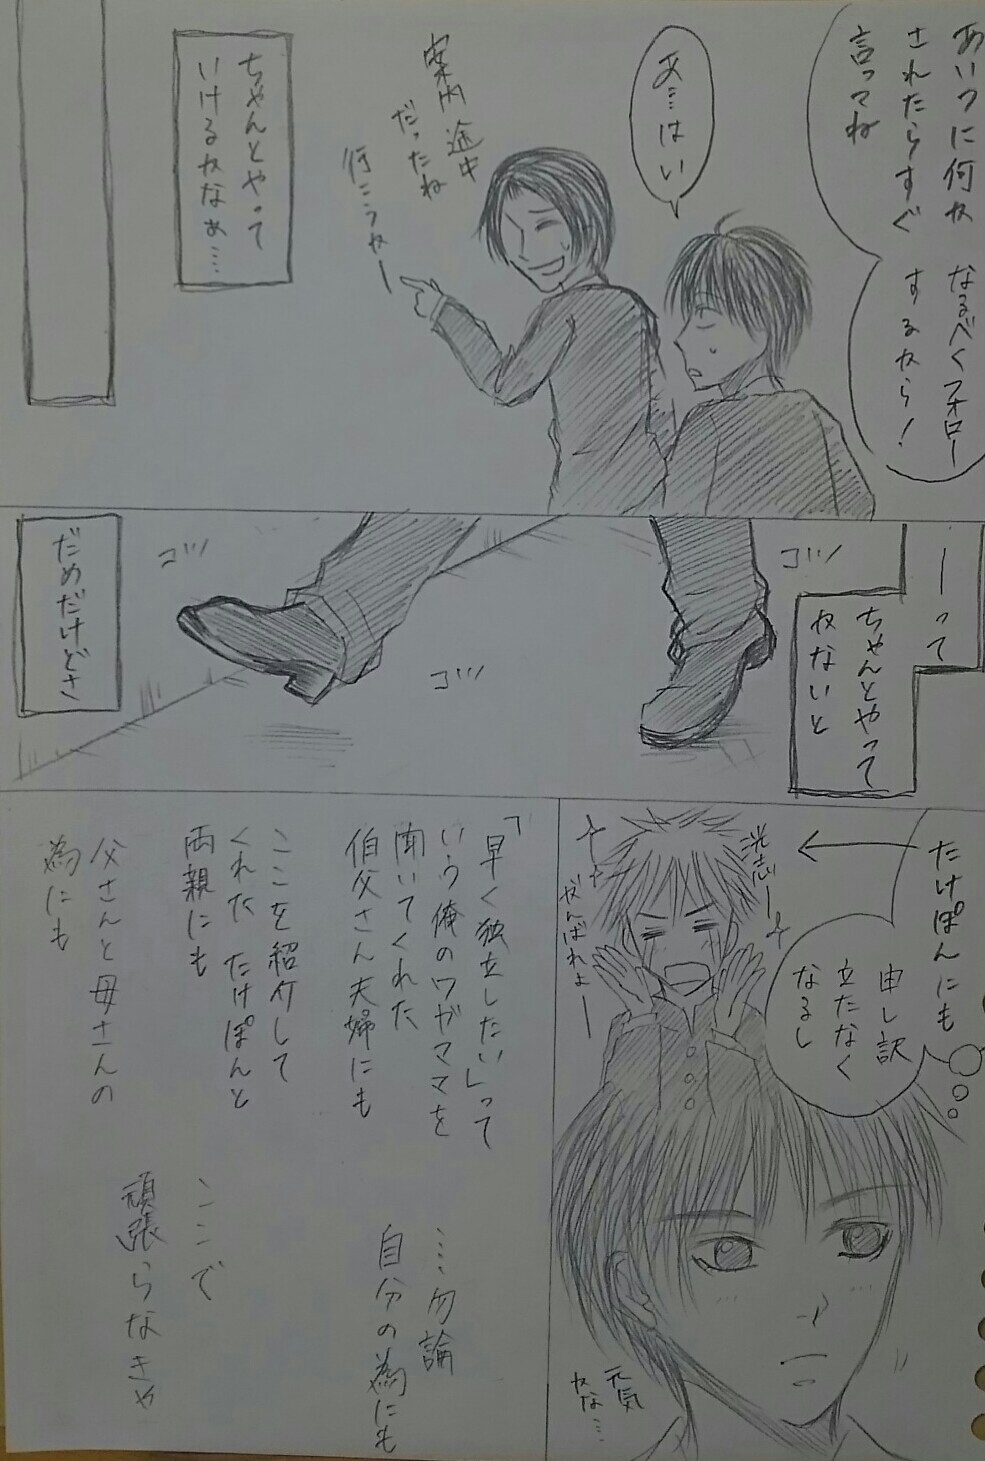 あいつに何か
されたらすぐ
言ってね
なるべくフォロー
するから！
あ…はい
案内途中
だったね
行こうかー
ちゃんとやって
いけるかなぁ…
ーって
ちゃんとやって
かないと
コツ
コツ
コツ
だめだけどさ
たけぽんにも
申し訳
立たなく
なるし
洸志ー
がんばれよー
元気
かな…
「早く独立したい」って
いう俺のワガママを
聞いてくれた
伯父さん夫婦にも
ここを紹介して
くれた たけぽんと
両親にも
父さんと母さんの
為にも
…勿論
自分の為にも
ここで
頑張らなきゃ